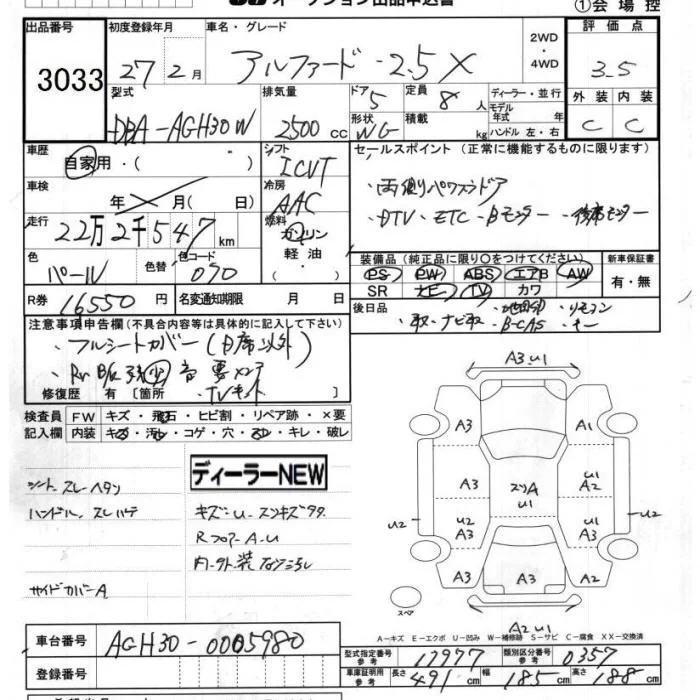 オークション出品申込書
①会場控
出品番号 3033
初度登録年月 27 2月
車名・グレード アルファード・2.5X
2WD・4WD
評価点 3.5
型式 DBA-AGH30W
排気量 2500 cc
ドア 5
定員 8 人
形状 WG
積載 kg
ディーラー・並行
モデル年式 年
ハンドル 左・右
外装 内装
C C
車歴 自家用・( )
シフト ICVT
セールスポイント(正常に機能するものに限ります)
車検 年 月( 日)
冷房 AAC
・両側パワスラドア
・DTV・ETC・Bモニター・後席モニター
走行 22万2千547km
燃料 ガソリン 軽油・( )
色 パール
色替
色コード 070
装備品(純正品に限り○をつけてください)
新車保証書
PS PW ABS エアB AW
SR ナビ TV カワ
有・無
R券 16550円
名変通知期限 月 日
後日品 ・取・ナビ取・地図SD・リモコン
・B-CAS・キー
注意事項申告欄(不具合内容等は具体的に記入して下さい)
・フルシートカバー(助席以外)
修復歴 有〔箇所
・TVキット
検査員記入欄
FW キズ・飛石・ヒビ割・リペア跡・×要
内装 キズ・汚れ・コゲ・穴・スレ・キレ・破レ
ディーラーNEW
シート スレヘタリ
ハンドル スレハゲ
キズ・U・スリキズ多々
RフロアーA.U
内・外装
サイドカバーA
A3.U1
A3 A1
A3 スリA U1 U1 A2
U2 U2 A3 U2 A3 U2
A3 A3 A2
スペア
A2U1
A-キズ E-エクボ U-凹み W-補修跡 S-サビ C-腐食 XX-交換済
車台番号 AGH30-0005980
登録番号
型式指定番号 参考 17977
類別区分番号 参考 0357
車庫証明用 参考 長さ 491cm 幅 185cm 高さ 188cm